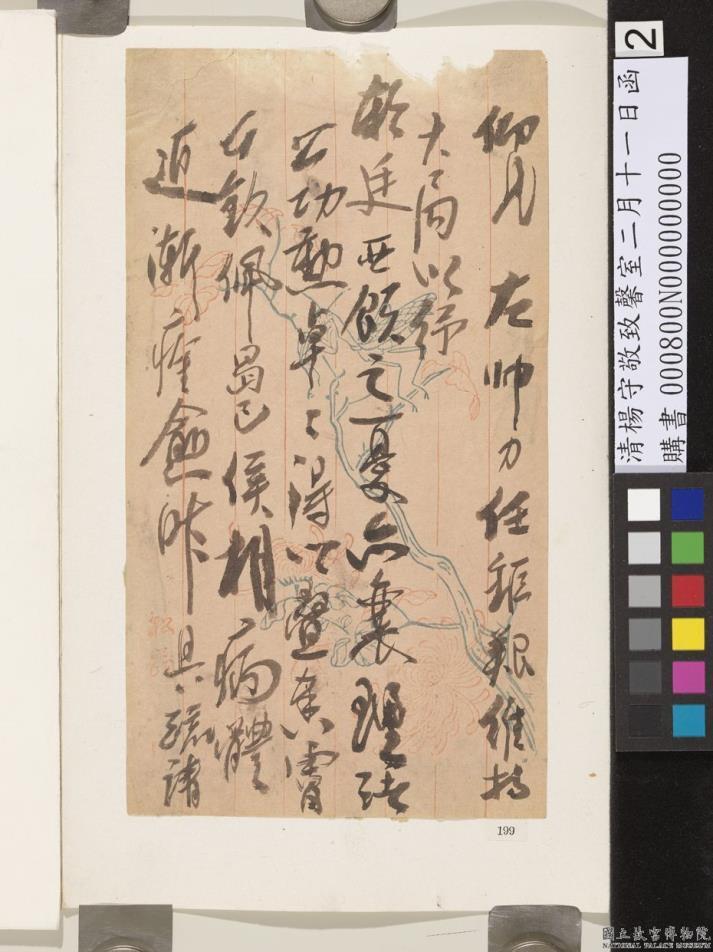 仰見 左帥力任鉅艱維持
大局以紓
朝廷西顧之憂而襄理諸
公功勳卓々得以疊奉
公欽佩曷已侯相病體
近漸痊愈昨具疏請
199
2
清楊守敬致馨室二月十一日函
購書 000800N000000000
國立故宮博物院
NATIONAL PALACE MUSEUM